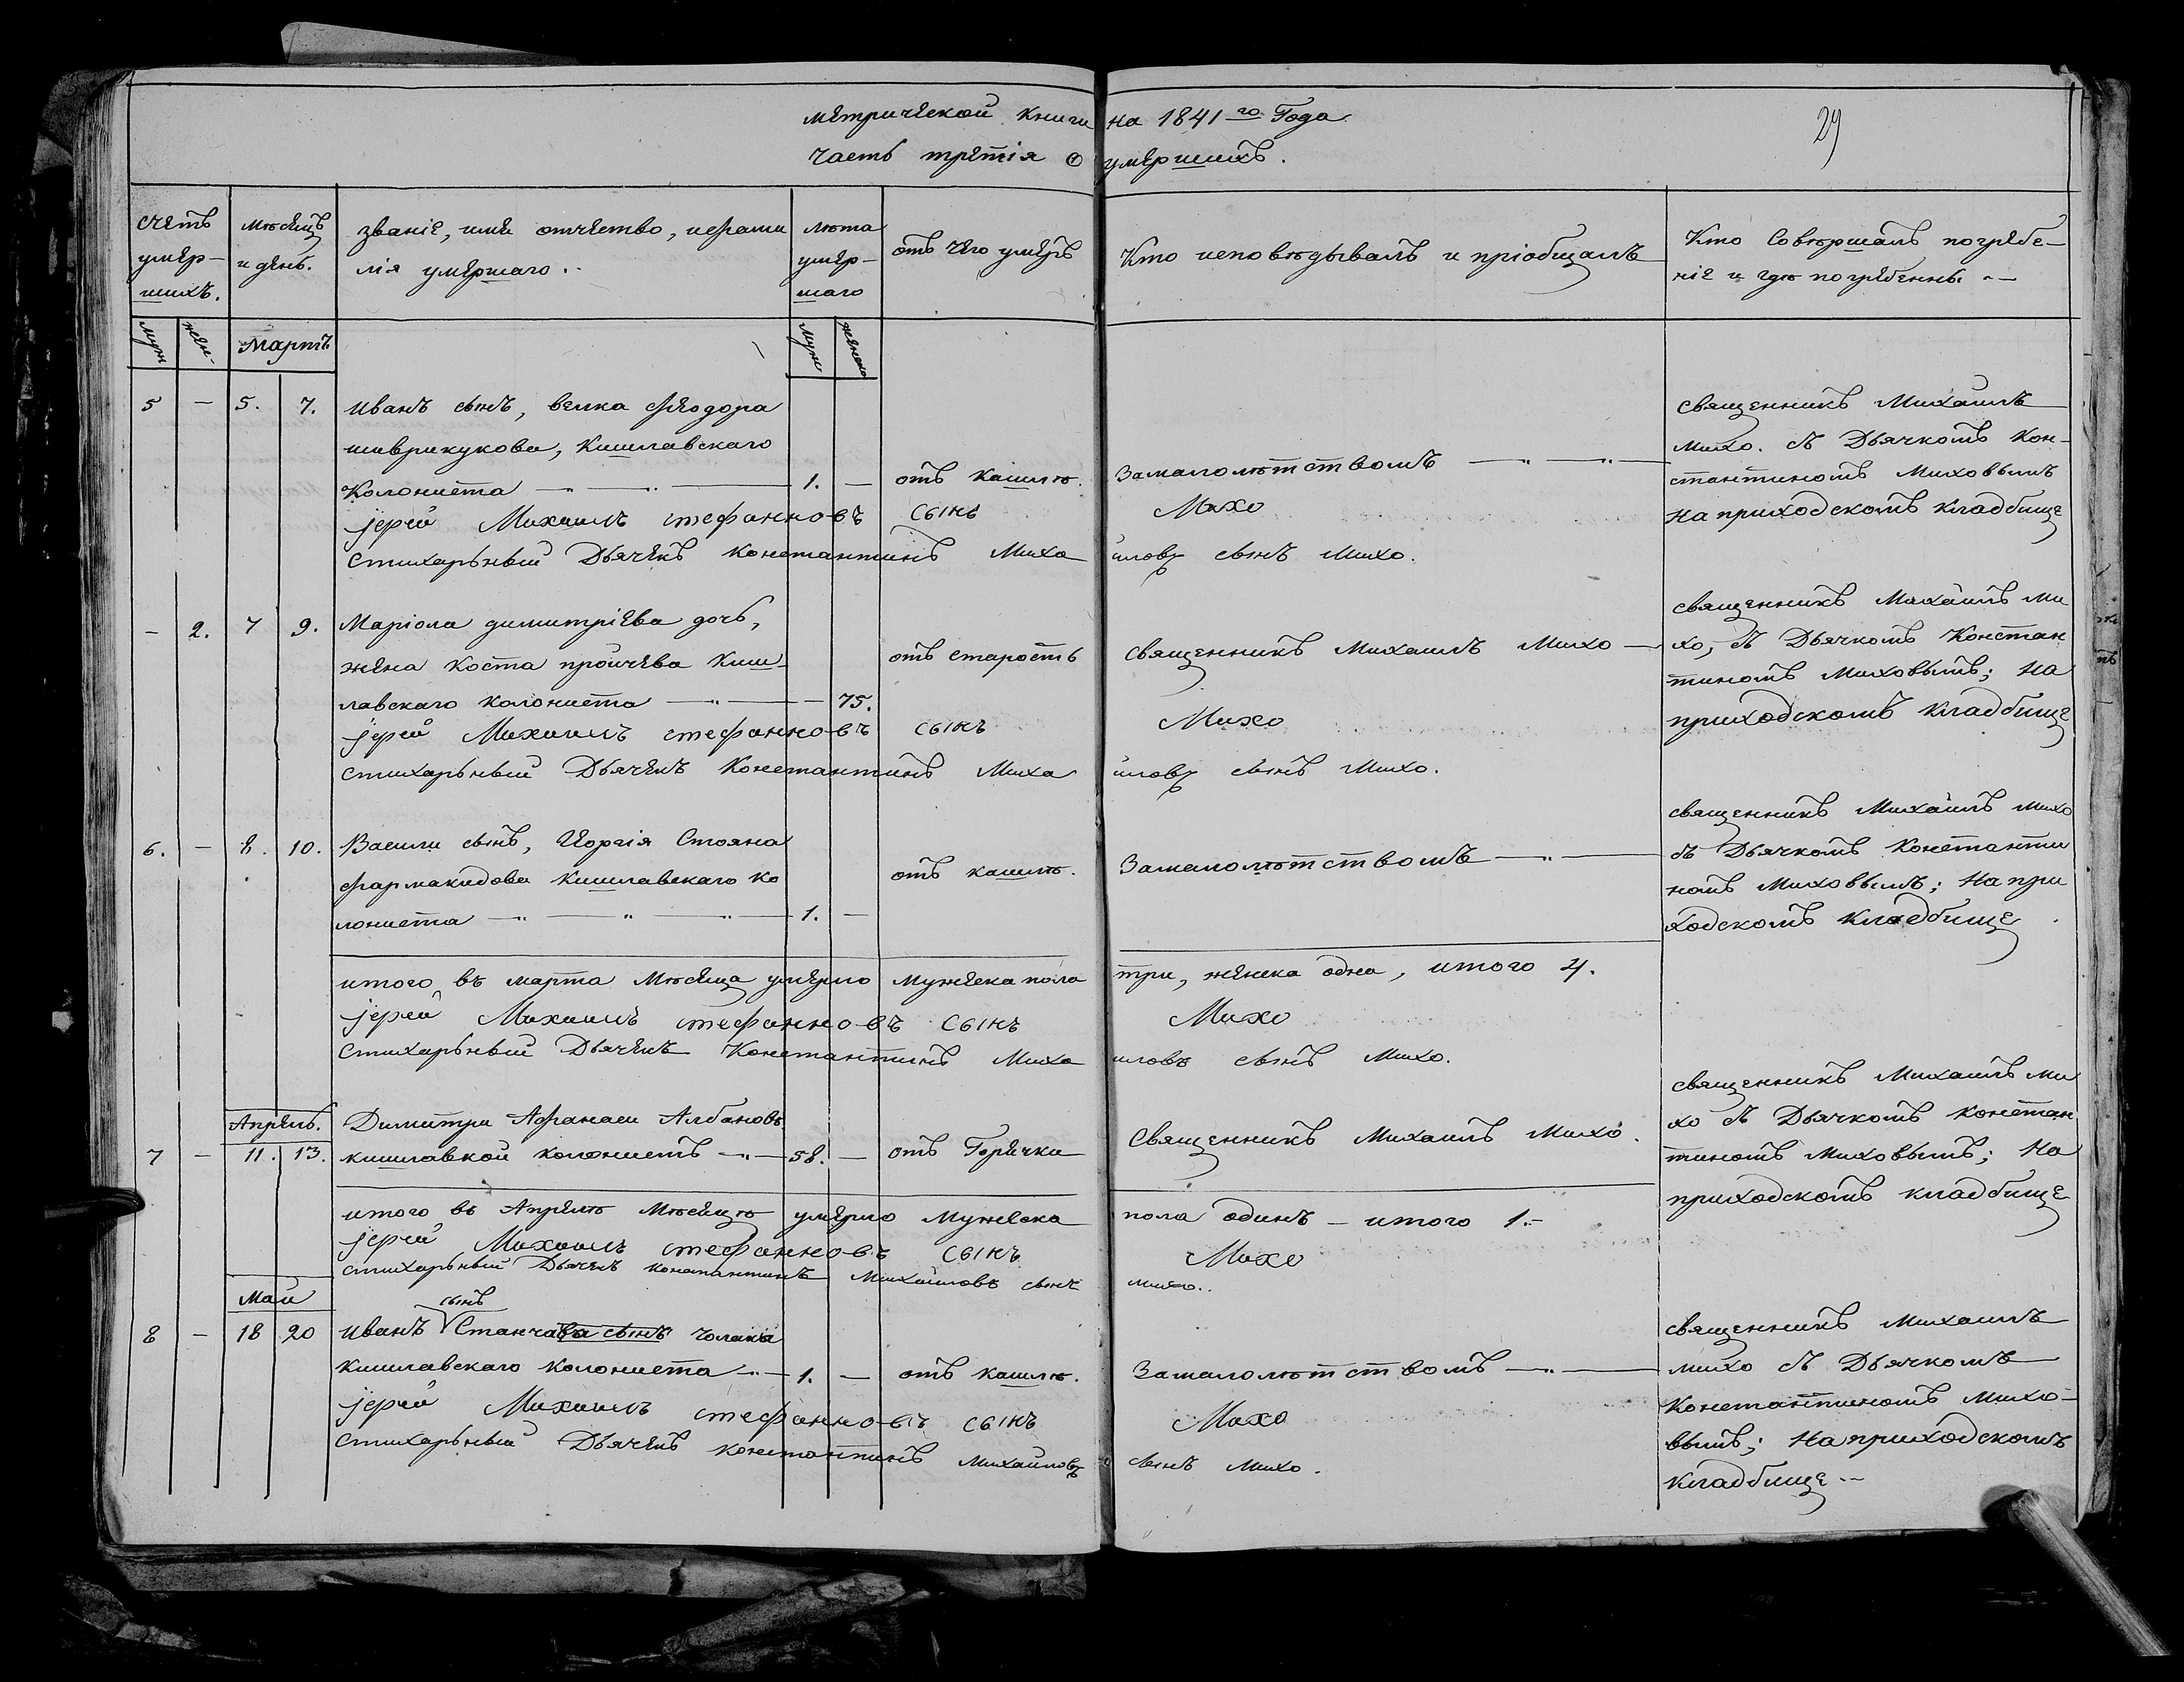 метрической книги на 1841го Года
29
Часть третія о умершихъ.
счетъ умер- шихъ.
мѣсяцъ и день.
званіе, имя отчество, ифами
лія умершаго..
лѣта умер- шаго
отъ чего умеръ
Кто исповѣдывалъ и пріобщалъ
Кто Совершалъ погребе-
ніе и гдѣ погребенны
муж
жен-
мартъ
муж
женско
5 — 5. 7. иванъ сынъ, велка феодора
шаврикукова, Кишлавскаго
колониста 1. — отъ кашлю. Замалолѣтствомъ
священникъ Михаилъ
михо. съ Дьячкомъ кон-
стантиномъ миховымъ
на приходскомъ кладбище
іерей Михаилъ стефанновъ сынъ Михо
Стихарьный Дьячекъ константинъ Миха иловъ сынъ михо.
— 2. 7 9. Маріола димитріева дочь,
жена коста пройчева киш-
лавскаго колониста — 75. отъ старость священникъ михаилъ михо —
священникъ Михаилъ ми
хо, съ Дьячкомъ Констан
тиномъ миховымъ; на
приходскомъ кладбище
іерей Михаилъ стефанновъ сынъ Михо
стихарьный Дьячекъ Константинъ Миха иловъ сынъ михо.
6. — 8. 10. Васили сынъ, Іоргія Стояна
фармакидова кишлавскаго ко
лониста 1. — отъ кашлю. Замалолѣтствомъ
священникъ Михаилъ михо
съ Дьячкомъ Константи
номъ миховымъ; на при
ходскомъ кладбище
итого въ марта мѣсяца умерло мужеска пола три, женска одна, итого 4.
іерей Михаилъ стефанновъ сынъ Михо
Стихарьный Дьячекъ Константинъ Миха иловъ сынъ михо.
Апрель.
7 — 11. 13. Димитри Афанаси Албановъ
кишлавкой колонистъ 58. — отъ Горячки Священникъ Михаилъ михо.
священникъ Михаилъ ми
хо съ Дьячкомъ констан
тиномъ миховымъ; на
приходскомъ кладбище
итого въ Апрелѣ мѣсяцѣ умерло мужеска пола одинъ — итого 1.-
іерей Михаилъ стефанновъ сынъ Михо
стихарьный Дьячекъ константинъ Михайловъ сынъ михо..
май
сынъ
8 — 18 20 иванъ Станчова сынъ чолака
кишлавскаго колониста 1. — отъ кашлю. Замалолѣтствомъ
священникъ михаилъ
михо съ Дьячкомъ
константиномъ михо-
вымъ; на приходскомъ
кладбище
іерей Михаилъ стефанновъ сынъ Михо
Стихарьный Дьячекъ константинъ михайловъ сынъ михо.